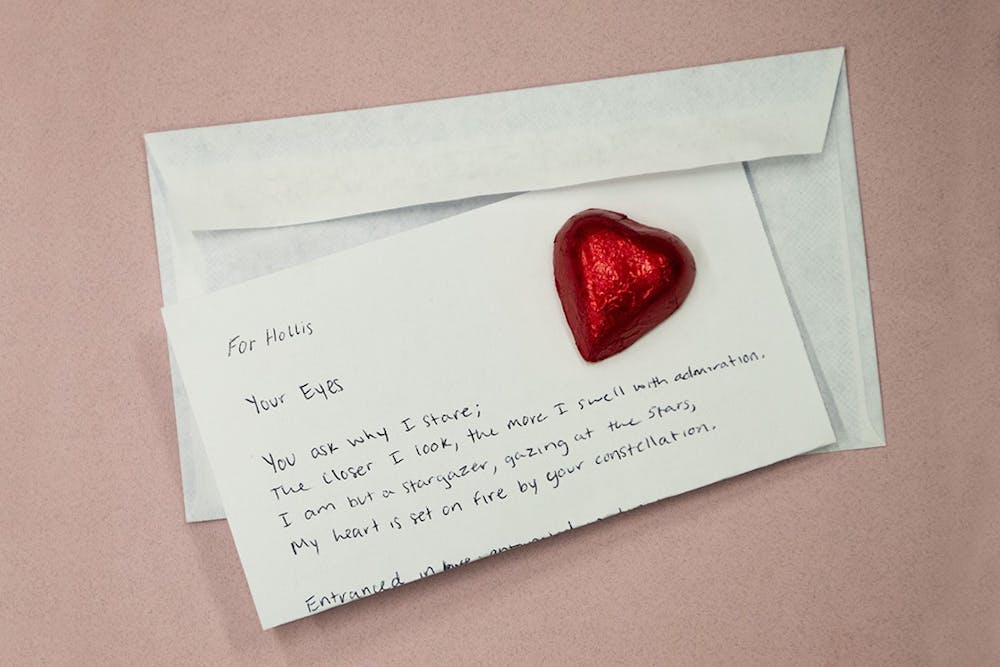 For Hollis
Your Eyes
You ask why I stare;
The closer I look, the more I swell with admiration.
I am but a stargazer, gazing at the stars,
My heart is set on fire by your constellation.
Entranced in love